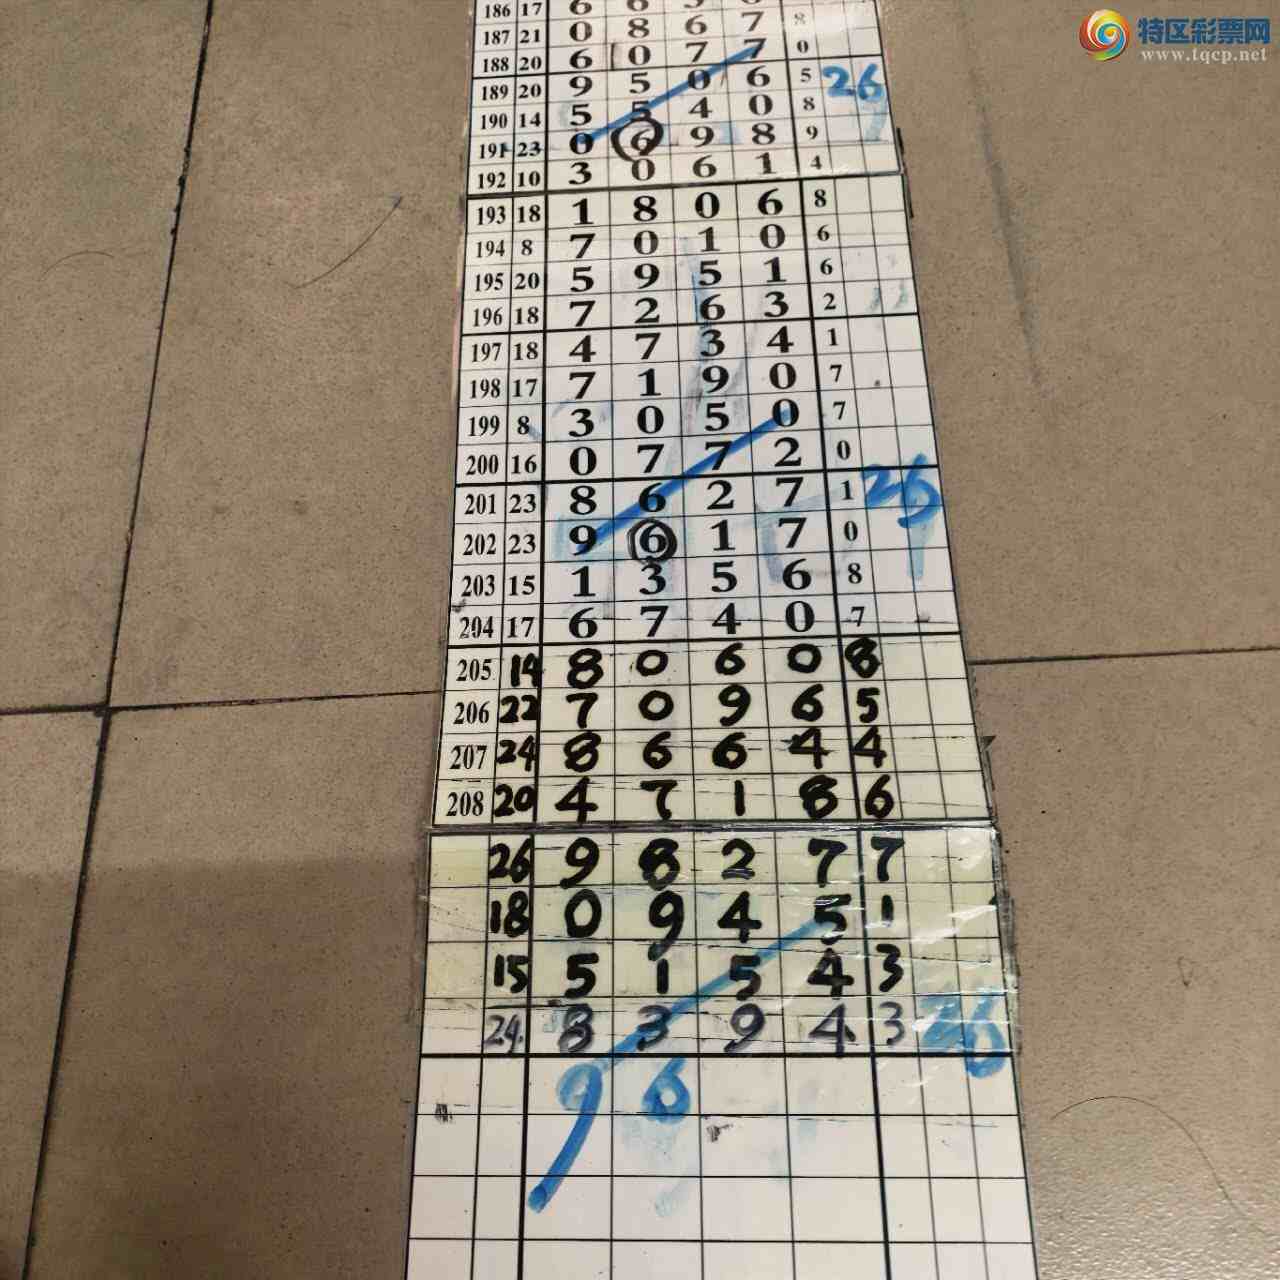 特区彩票网
www.tqcp.net
186 17 6 8 5 6
187 21 0 8 6 7 8
188 20 6 0 7 7 0
189 20 9 5 0 6 5 26
190 14 5 5 4 0 8
191 23 0 6 9 8 9
192 10 3 0 6 1 4
193 18 1 8 0 6 8
194 8 7 0 1 0 6
195 20 5 9 5 1 6
196 18 7 2 6 3 2
197 18 4 7 3 4 1
198 17 7 1 9 0 7
199 8 3 0 5 0 7
200 16 0 7 7 2 0
201 23 8 6 2 7 1 26
202 23 9 6 1 7 0
203 15 1 3 5 6 8
204 17 6 7 4 0 7
205 14 8 0 6 0 8
206 22 7 0 9 6 5
207 24 8 6 6 4 4
208 20 4 7 1 8 6
26 9 8 2 7 7
18 0 9 4 5 1
15 5 1 5 4 3
24 8 3 9 4 3 26
9 6